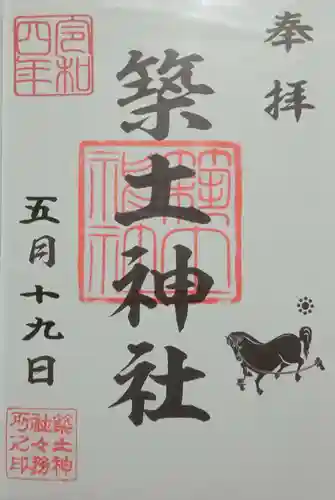 奉拝
築土神社
築土神社
令和四年
五月十九日
築土神社々務所之印